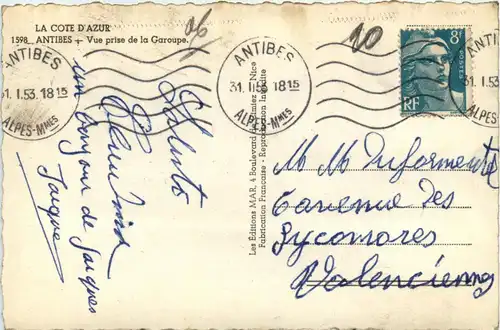 LA COTE D'AZUR
1598 ANTIBES — Vue prise de la Garoupe.
26
10
ANTIBES
31. 1. 53. 18 15
ALPES-Mmes
ANTIBES
31. 1. 53 18 15
ALPES-Mmes
8F
POSTES
RF
Saluts
un bonjour de Jacques
Jacques
Les Editions MAR, 4 Boulevard de Cimiez - Nice
Fabrication Française - Reproduction Interdite
M. M. Duforment
6 avenue des
Sycomores
Valenciennes